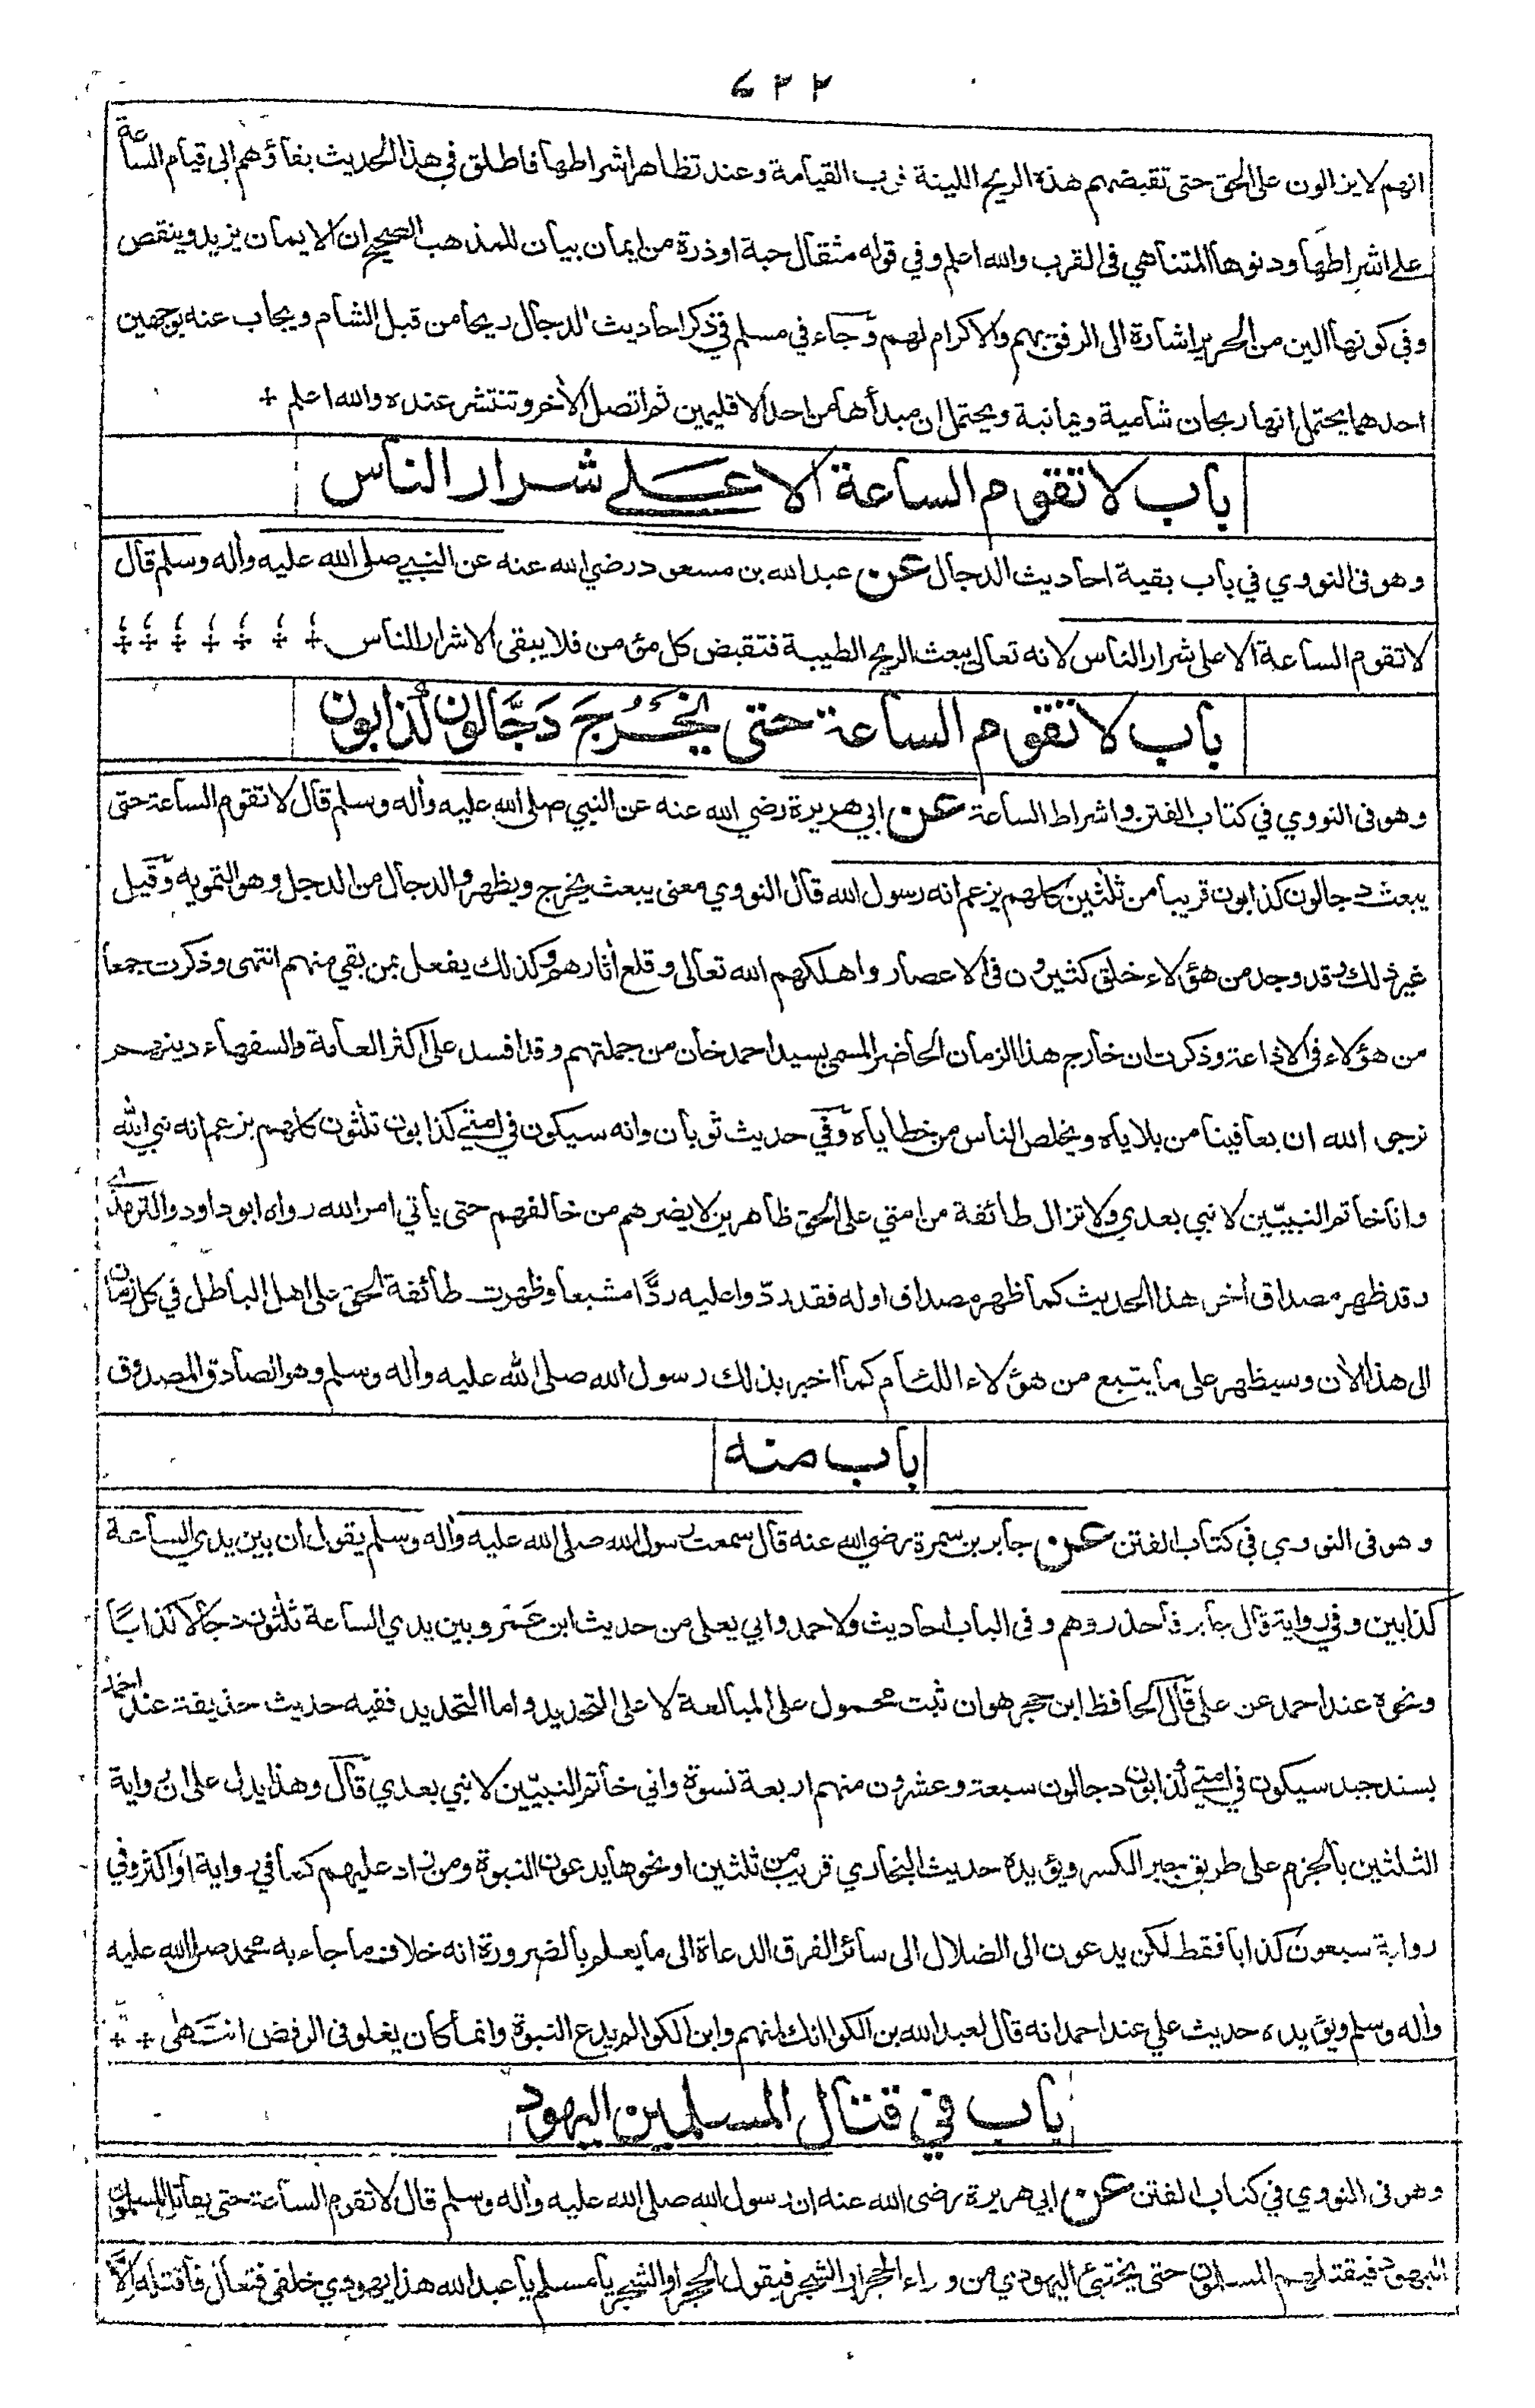 ٦٢٢
انهم لا يزالون على الحق حتى تقبضهم هذه الريح اللينة قرب القيامة وعند تظاهر اشراطها فاطلق في هذا الحديث بقاؤهم الى قيام الساعة
على اشراطها ودنوها المتناهي فى القرب والله اعلم وفي قوله مثقال حبة اوذرة من ايمان بيان للمذهب الصحيح ان الايمان يزيد وينقص
وفي كونها الين من الحرير اشارة الى الرفق بهم والاكرام لهم وجاء في مسلم في ذكر احاديث الدجال ريحا من قبل الشام ويجاب عنه بوجهين
احدهما يحتمل انها ريحان شامية ويمانية ويحتمل ان مبدأها من احد الاقليمين ثم اتصل الأخر وتنتشر عنده والله اعلم
باب لا تقوم الساعة الا على شرار الناس
وهو فى النووي في باب بقية احاديث الدجال عن عبد الله بن مسعود رضي الله عنه عن النبي صلى الله عليه وأله وسلم قال
لا تقوم الساعة الا على شرار الناس لانه تعالى يبعث الريح الطيبة فتقبض كل مؤمن فلا يبقى الا شرار الناس
باب لا تقوم الساعة حتى يخرج دجالون كذابون
وهو فى النووي في كتاب الفتن واشراط الساعة عن ابي هريرة رضي الله عنه عن النبي صلى الله عليه وأله وسلم قال لا تقوم الساعة حتى
يبعث دجالون كذابون قريبا من ثلثين كلهم يزعم انه رسول الله قال النووي معنى يبعث يخرج ويظهر والدجال من الدجل وهو التمويه وقيل
غير ذلك وقد وجد من هؤلاء خلق كثيرون فى الاعصار واهلكهم الله تعالى وقلع أثارهم وكذلك يفعل بمن بقي منهم انتهى وذكرت جمعا
من هؤلاء فى الاذاعة وذكرت ان خارج هذا الزمان الحاضر المسمى بسيد احمد خان من جملتهم وقد افسد على اكثر العامة والسفهاء دينهم
نرجى الله ان يعافينا من بلاياه ويخلص الناس من خطاياه وفي حديث ثوبان وانه سيكون في امتي كذابون ثلثون كلهم يزعم انه نبي الله
وانا خاتم النبيين لا نبي بعدي ولا تزال طائفة من امتي على الحق ظاهرين لا يضرهم من خالفهم حتى يأتي امر الله رواه ابو داود والترمذي
وقد ظهر مصداق أخر هذا الحديث كما ظهر مصداق اوله فقد ردوا عليه ردًّا مشبعا وظهرت طائفة الحق على اهل الباطل في كل زمان
الى هذا الأن وسيظهر على ما يتبع من هؤلاء اللئام كما اخبر بذلك رسول الله صلى الله عليه وأله وسلم وهو الصادق المصدوق
باب منه
وهو فى النووي في كتاب الفتن عن جابر بن سمرة رضي الله عنه قال سمعت رسول الله صلى الله عليه وأله وسلم يقول ان بين يدي الساعة
كذابين وفي رواية قال جابر فاحذروهم وفى الباب احاديث ولاحمد وابي يعلى من حديث ابن عمرو بين يدي الساعة ثلثون دجالا كذابًا
ونحوه عند احمد عن علي قال الحافظ ابن حجر هو ان ثبت محمول على المبالغة لا على التحديد واما التحديد ففيه حديث حذيفة عند احمد
بسند جيد سيكون في امتي كذابون دجالون سبعة وعشرون منهم اربعة نسوة واني خاتم النبيين لا نبي بعدي قال وهذا يدل على ان رواية
الثلثين بالجزم على طريق جبر الكسر ويؤيده حديث البخاري قريب من ثلثين او نحوها يدعون النبوة ومن زاد عليهم كما في رواية او اكثر وفي
رواية سبعون كذابا فقط لكن يدعون الى الضلال الى سائر الفرق الدعاة الى ما يعلم بالضرورة انه خلاف ما جاء به محمد صلى الله عليه
وأله وسلم ويؤيده حديث علي عند احمد انه قال لعبد الله بن الكوا انك لمنهم وابن الكوا لم يدع النبوة وانما كان يغلو فى الرفض انتهى
باب في قتال المسلمين اليهود
وهو فى النووي في كتاب الفتن عن ابي هريرة رضى الله عنه ان رسول الله صلى الله عليه وأله وسلم قال لا تقوم الساعة حتى يقاتل المسلمون
اليهود فيقتلهم المسلمون حتى يختبئ اليهودي من وراء الحجر او الشجر فيقول الحجر او الشجر يا مسلم يا عبد الله هذا يهودي خلفي فتعال فاقتله الا